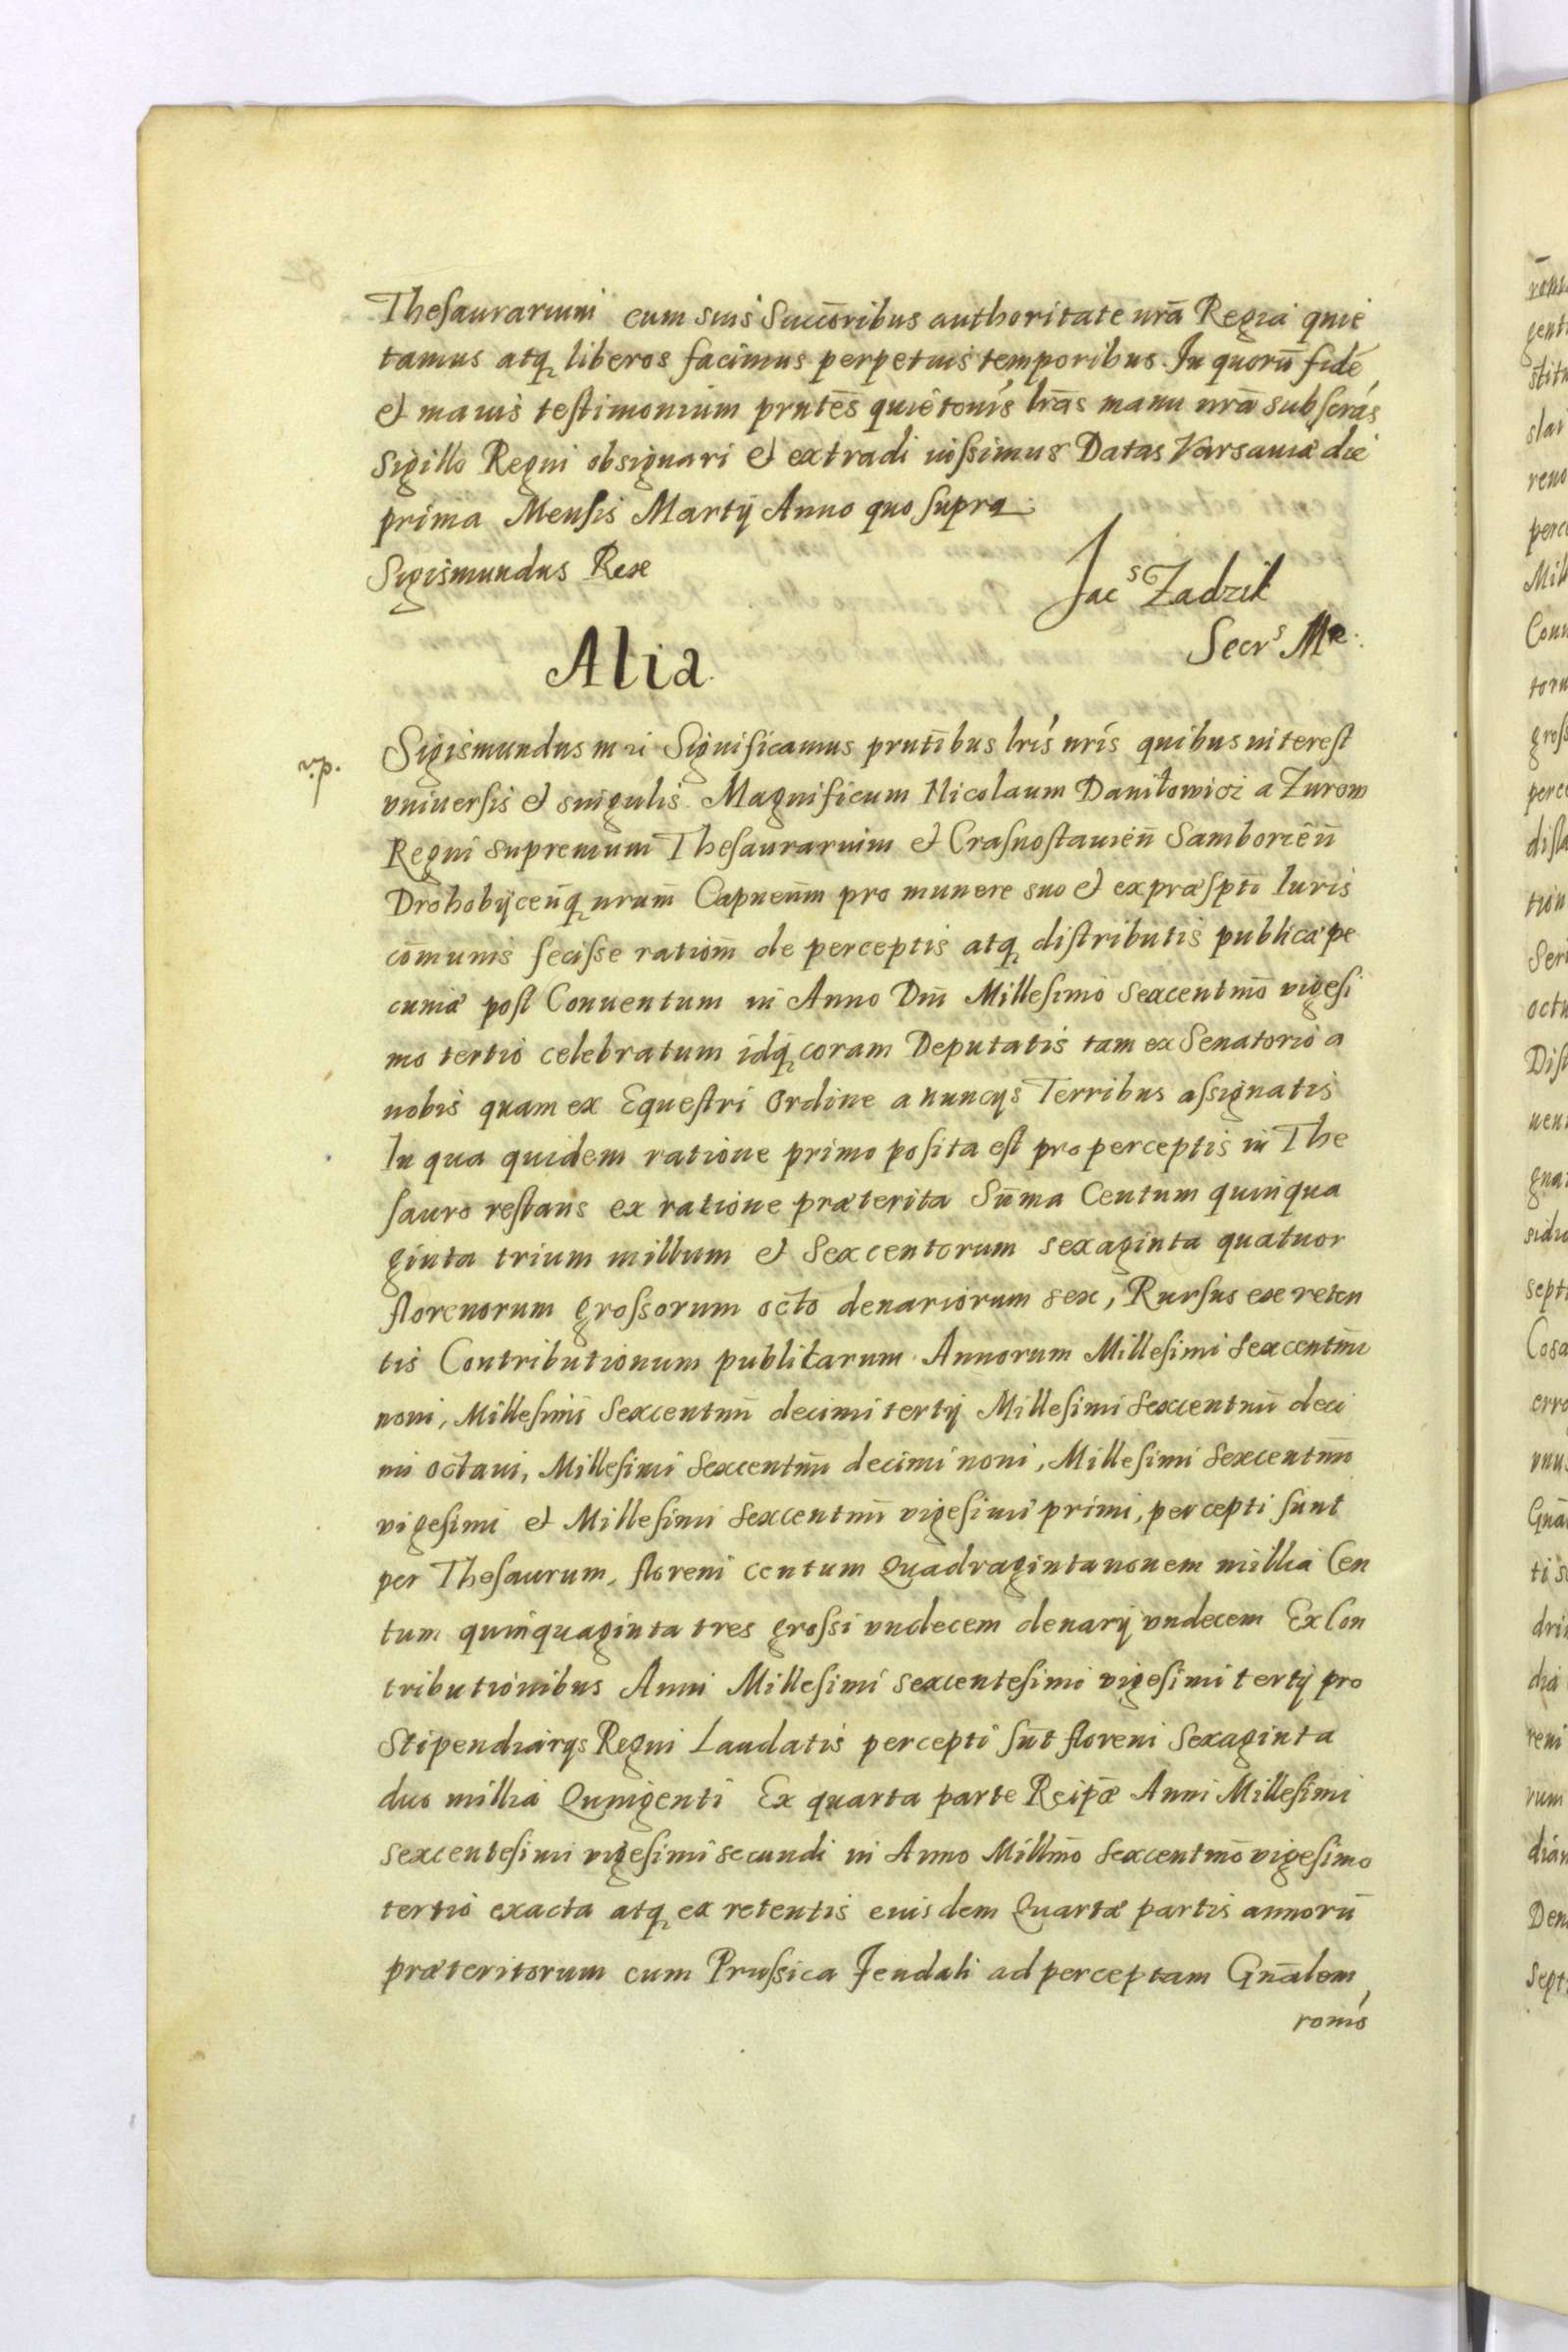 Thesaurarium cum suis Succōribus authoritate nrā Regia quie
tamus atq liberos facimus perpetuis temporibus. In quorū fidē
et maius testimonium prntēs quietonis lrās manu nrā subscrás
Sigillo Regni obsignari et extradi iussimus Datas Varsaviæ die
prima Mensis Martÿ Anno quo supra.
Sigismundus Rex
Jacˢ Zadzik
Secrˢ Mr.
Alia
Sigismundus Significamus prntibus lris nris quibus interest
vniversis et singulis Magnificum Nicolaum Daniłowicz a Zurow
v.p.
Regni Supremum Thesaurarium et Crasnostauieñ Samborieñ
Drohobÿceñq nrum̄ Capneum̄ pro munere suo et ex præsptō Iuris
cōmunis fecisse rationm̄ de perceptis atq distributis publicæ pe
cuniæ post Conuentum in Anno Dnī Millesimo Sexcentmō vigesi
mo tertio celebratum idq coram Deputatis tam ex Senatorio a
nobis quam ex Equestri Ordine a nuncÿs Terribus assignatis
In qua quidem ratione primo posita est pro perceptis in The
sauro restans ex ratione præterita Sūma Centum quinqua
ginta trium millium et Sexcentorum sexaginta quatuor
florenorum grossorum octo denariorum sex, Rursus ex reten
tis Contributionum publicarum Annorum Millesimi Sexcentmī
noni, Millesimi Sexcentmī decimi tertÿ Millesimi Sexcentmī deci
mi octaui, Millesimi Sexcentmī decimi noni, Millesimi Sexcentmī
vigesimi et Millesimi Sexcentmī vigesimi primi, percepti sunt
per Thesaurum, floreni centum Quadraginta nouem millia Cen
tum quinquaginta tres grossi vndecem denarÿ vndecem Ex Con
tributionibus Anni Millesimi Sexcentesimi vigesimi tertÿ pro
Stipendiarÿs Regni Laudatis percepti sūt floreni Sexaginta
duo millia Quingenti Ex quarta parte Reipæ Anni Millesimi
sexcentesimi vigesimi secundi in Anno Millmō Sexcentmō vigesimo
tertio exacta atq ex retentis eiusdem Quartæ partis annorū
præteritorum cum Prussica Feudali ad perceptam Gnālem
ronis